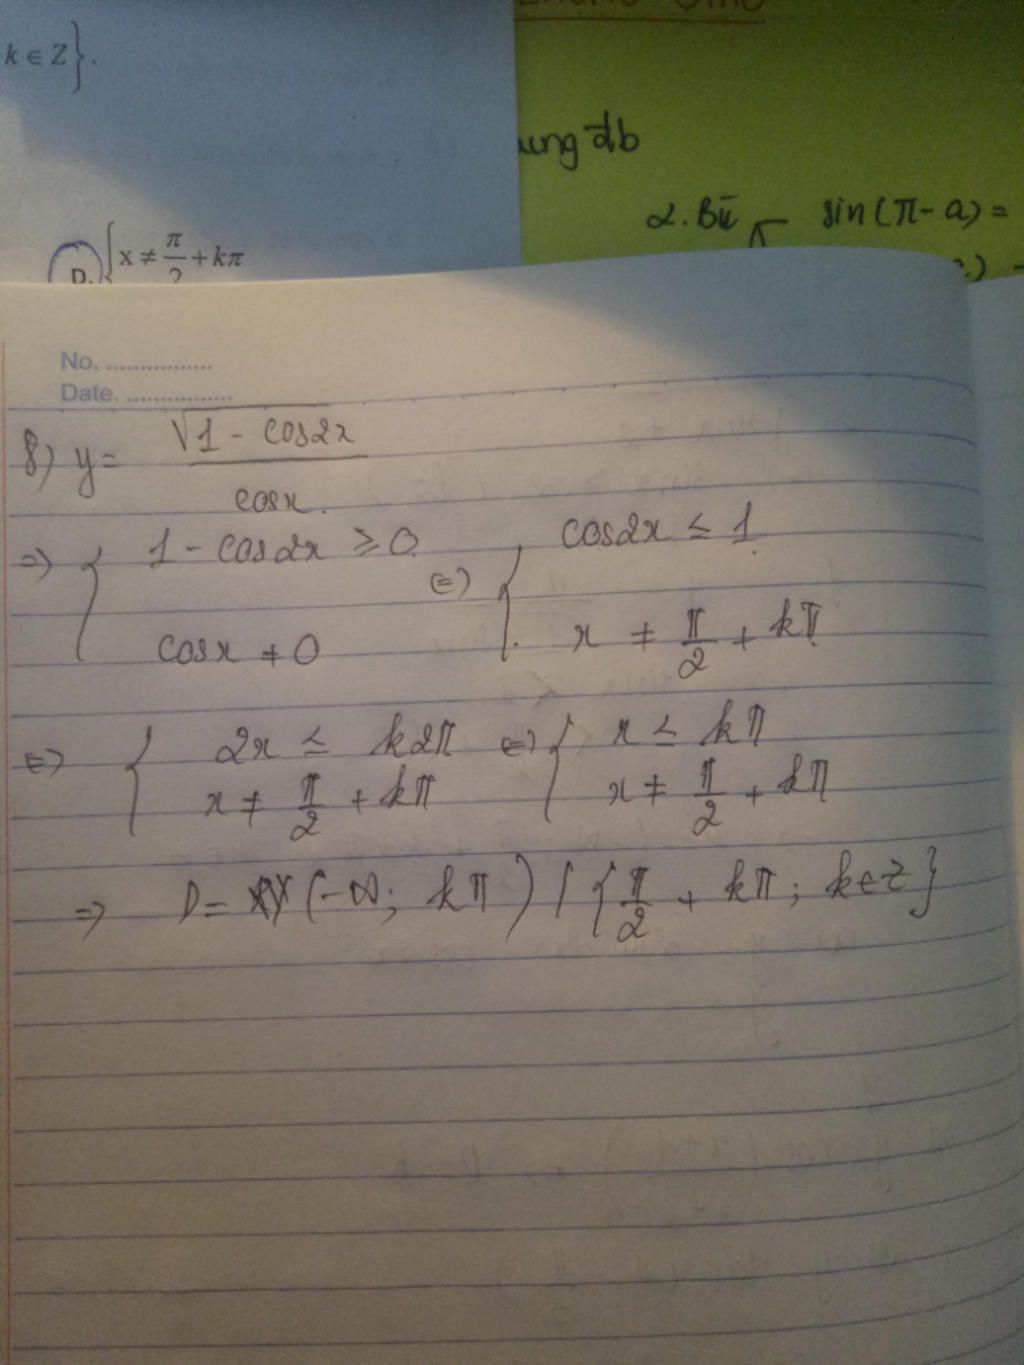 k ∈ Z}.
ung đb
2. Bù sin(π - a) =
D. {x ≠ π/2 + kπ
No. ................
Date. ................
8) y = √1 - cos2x / cosx.
=> { 1 - cos2x ≥ 0 (=) { cos2x ≤ 1
cosx ≠ 0 x ≠ π/2 + kπ
(=) { 2x ≤ k2π (=) { x ≤ kπ
x ≠ π/2 + kπ x ≠ π/2 + kπ
=> D = (-∞; kπ) / {π/2 + kπ; k∈Z}